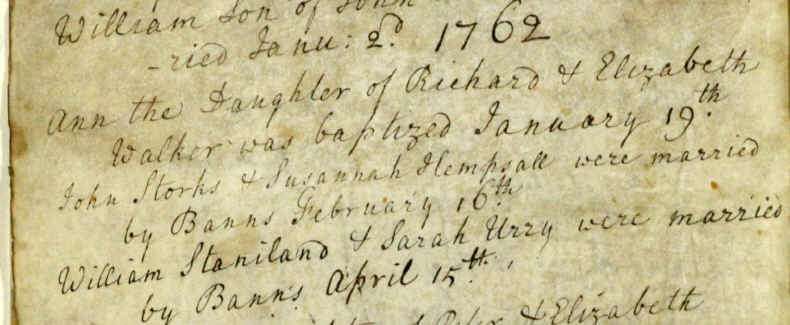 William Son of John
-ried Janu: 2d. 1762
Ann the Daughter of Richard & Elizabeth
Walker was baptized January 19th.
John Storks & Susannah Hempsall were married
by Banns February 16th.
William Staniland & Sarah Urry were married
by Banns April 15th.
& Elizabeth